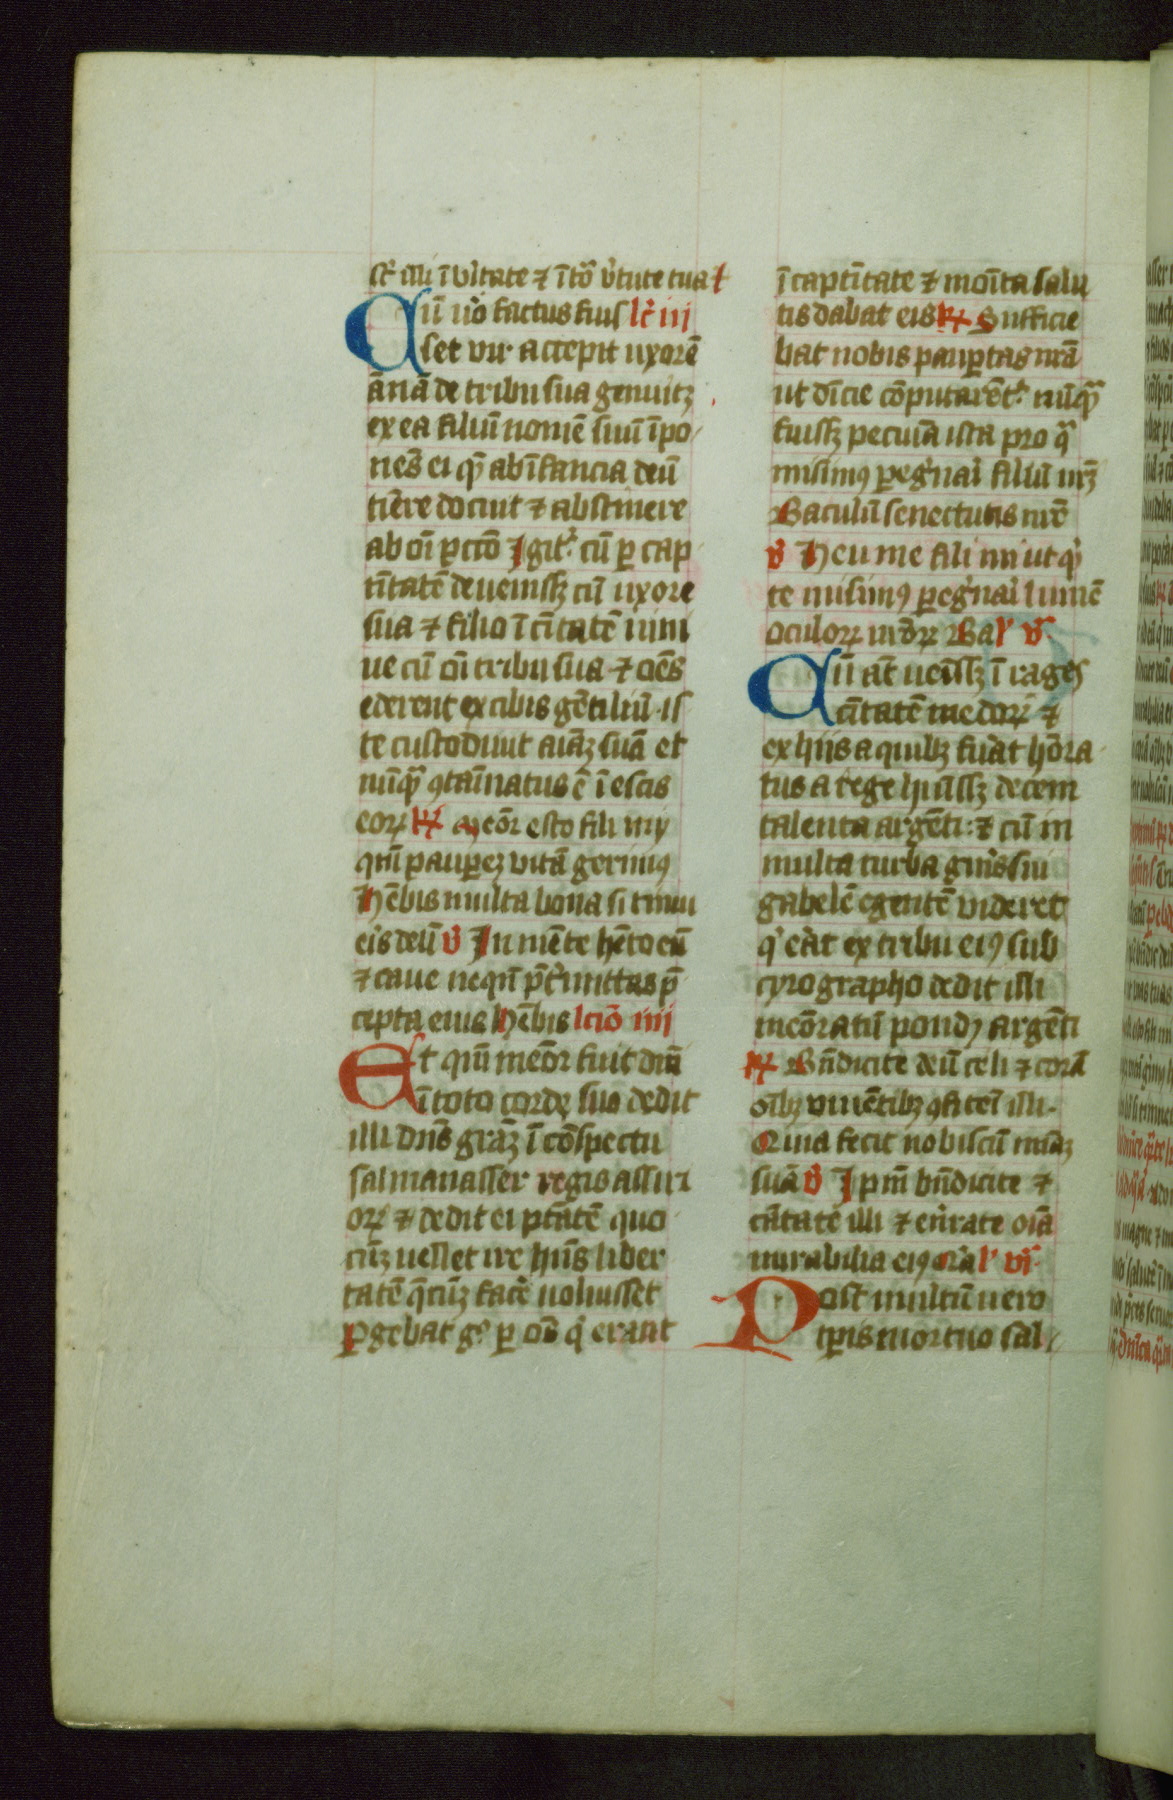 ſt̄ illi ī v̓itate ⁊ ī tō v̓tute tua
Cū u̓o factus fuiſ lc̄ iii
ſet vir accepit uxorē
ānā de tribu sua genuitꝫ
ex ea filiū nomē suū īpo
nēs ei qͥ ab īfancia deū
timēre docuit ⁊ abstinere
ab oī pctō Igit͛ cū ꝑ cap
tītatē deuenisꝫ cū uxore
sua ⁊ filio ī cītatē nini
ue cū oī tribu sua ⁊ oēs
ederent ex cibis gētiliū is
te custodiuit aīaꝫ suā et
nūqͣ ꝯtaīnatus ē ī escis
eoꝝ ℟ Meōr esto fili mi
qm̄ pauꝑeꝫ vitā gerimꝰ
Hēbis multa bona si timu
eīs deū v̓ In mēte hēto eū
⁊ caue neqn̄ p̄t̓mittas p̄
cepta eius Hēbis lctō iiii
Et qm̄ meōr fuit dn̄i
ī toto corde suo dedit
illi dn̄s grāꝫ ī cōspectu
salmanasser regis assiri
oꝝ ⁊ dedit ei ptātē quo
cūꝫ uellet ire hn̄s liber
tatē q̄cūꝫ facē uoluisset
Pgebat g° ꝑ oēs qͥ erant
ī captītate ⁊ monīta salu
tis dabat eis ℟ Sufficie
bat nobis pauꝑtas nrā
ut dīcie cōputarēt͛ nūqͣ
fuisꝫ pecuīa ista pro qͣ
misimꝰ ꝑeg̓naī filiū nr̄ꝫ
Baculū senectutis nrē
v̓ Heu me fili mi ut qͥ
te misimꝰ ꝑeg̓naī lumē
oculoꝝ nr̄oꝝ Ba lͨ v̄
Cū at̄ uenīsꝫ ī rages
cītatē medoꝝ ⁊
ex hiis a quibꝫ fuāt hōra
tus a rege huīssꝫ decem
talenta argēti ⁊ cū in
multa turba gn̄is sui
gabelē egentē videret
qͥ eāt ex tribu eiꝰ sub
cyrographo dedit illi
meōratū pondꝰ argēti
℟ Bn̄dicite deū celi ⁊ corā
oībꝫ viuētibꝫ ꝯfitēī illi
Quia fecit nobiscū mīaꝫ
suā v̓ Ipm̄ bn̄dicite ⁊
cātate illi ⁊ en̄rate oīa
mirabilia eiꝰ Qr̄a lͨ vi
Post multū uero
tꝑis mortuo sal